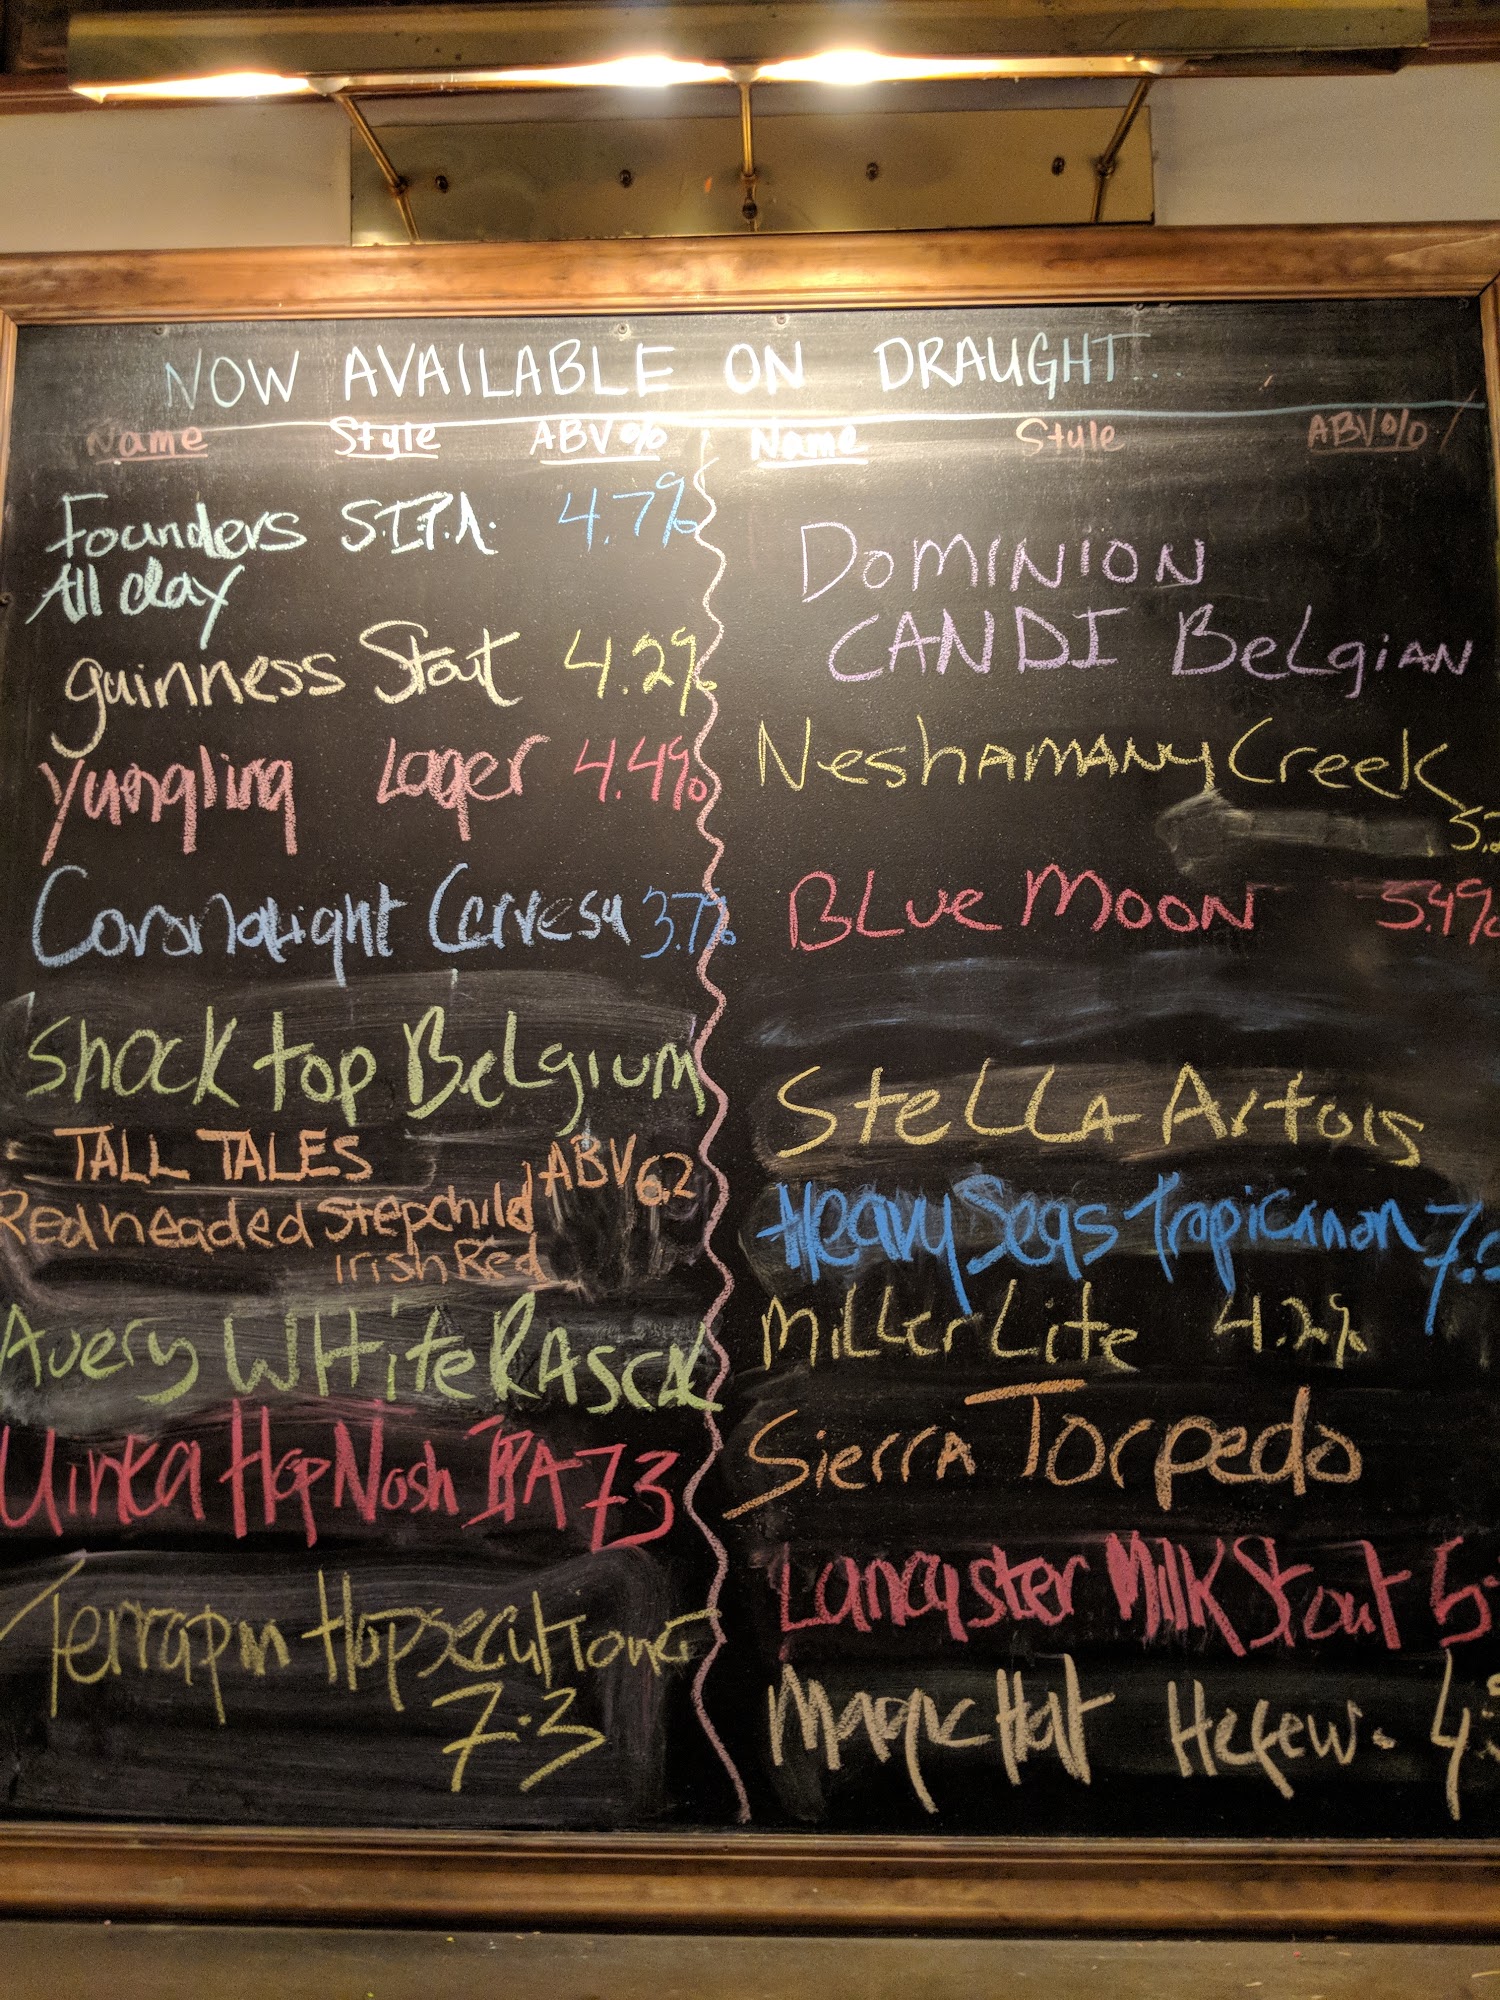 NOW AVAILABLE ON DRAUGHT...
Name Style ABV%
Founders S.I.P.A. 4.7%
All day
guinness Stout 4.2%
Yuengling Lager 4.4%
Corona Light Cervesa 3.7%
Shock top Belgium
TALL TALES ABV 6.2
Redheaded Stepchild
Irish Red
Avery WHite RAscal
Uinta Hop Nosh IPA 7.3
Terrapin Hopsecutioner
7.3
Name Style ABV%
DOMINION
CANDI BeLgiAN
NeshAMANy Creek
5.2
BLue MOON 5.4%
SteLLA Artois
Heavy Seas Tropicannon 7.
MiLLer Lite 4.2%
SierrA Torpedo
Lancaster Milk Stout 5.
Magic Hat Hefew. 4.